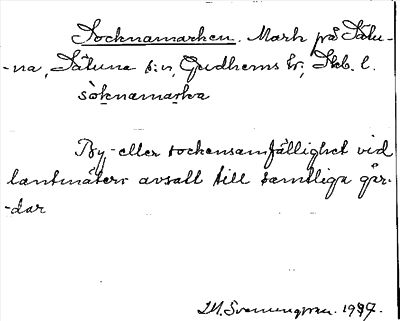 Socknamarken. Mark på Sätu-
-na, Sätuna s:n, Gudhems hr, Skb. l.
söknamarka
By- eller sockensamfällighet vid
lantmäteri avsatt till samtliga går-
-dar
M. Svenungsson. 1937.